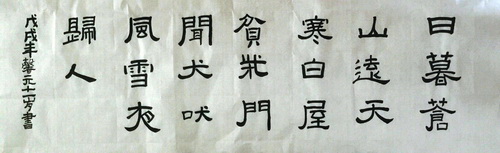 日暮蒼
山遠天
寒白屋
貧柴門
聞犬吠
風雪夜
歸人
戊戌年馨元十一岁書